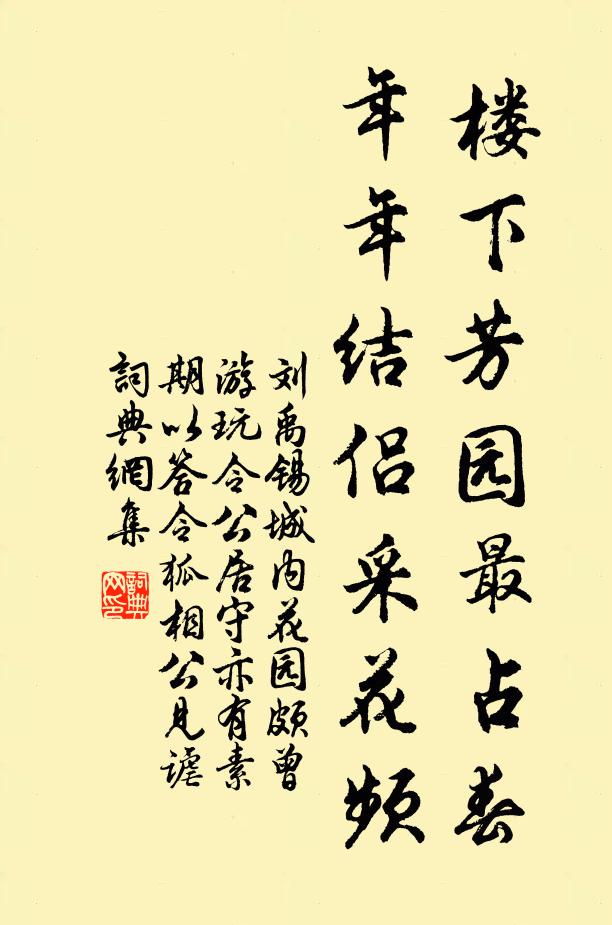 楼下芳园最占春
年年结侣采花频
刘禹锡城内花园颇曾
游玩令公居守亦有素
期以答令狐相公见谑
詞典網集
詞典网印